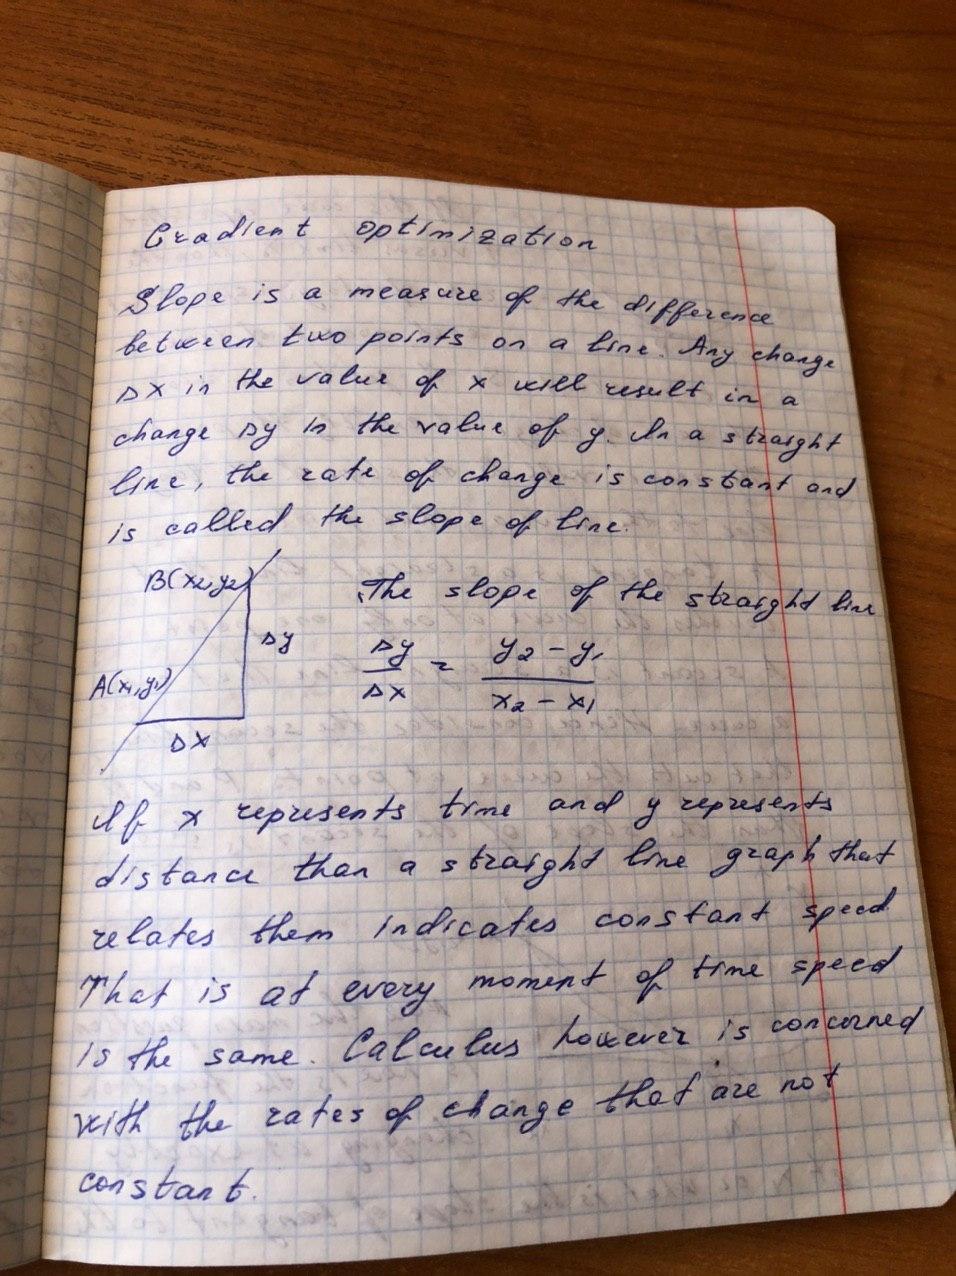 Gradient optimization
Slope is a measure of the difference
between two points on a line. Any change
Δx in the value of x will result in a
change Δy in the value of y. In a straight
line, the rate of change is constant and
is called the slope of line.
B(x₂,y₂)
The slope of the straight line
Δy
Δy/Δx = y₂ - y₁/x₂ - x₁
A(x₁,y₁)
Δx
If x represents time and y represents
distance than a straight line graph that
relates them indicates constant speed.
That is at every moment of time speed
is the same. Calculus however is concerned
with the rates of change that are not
constant.